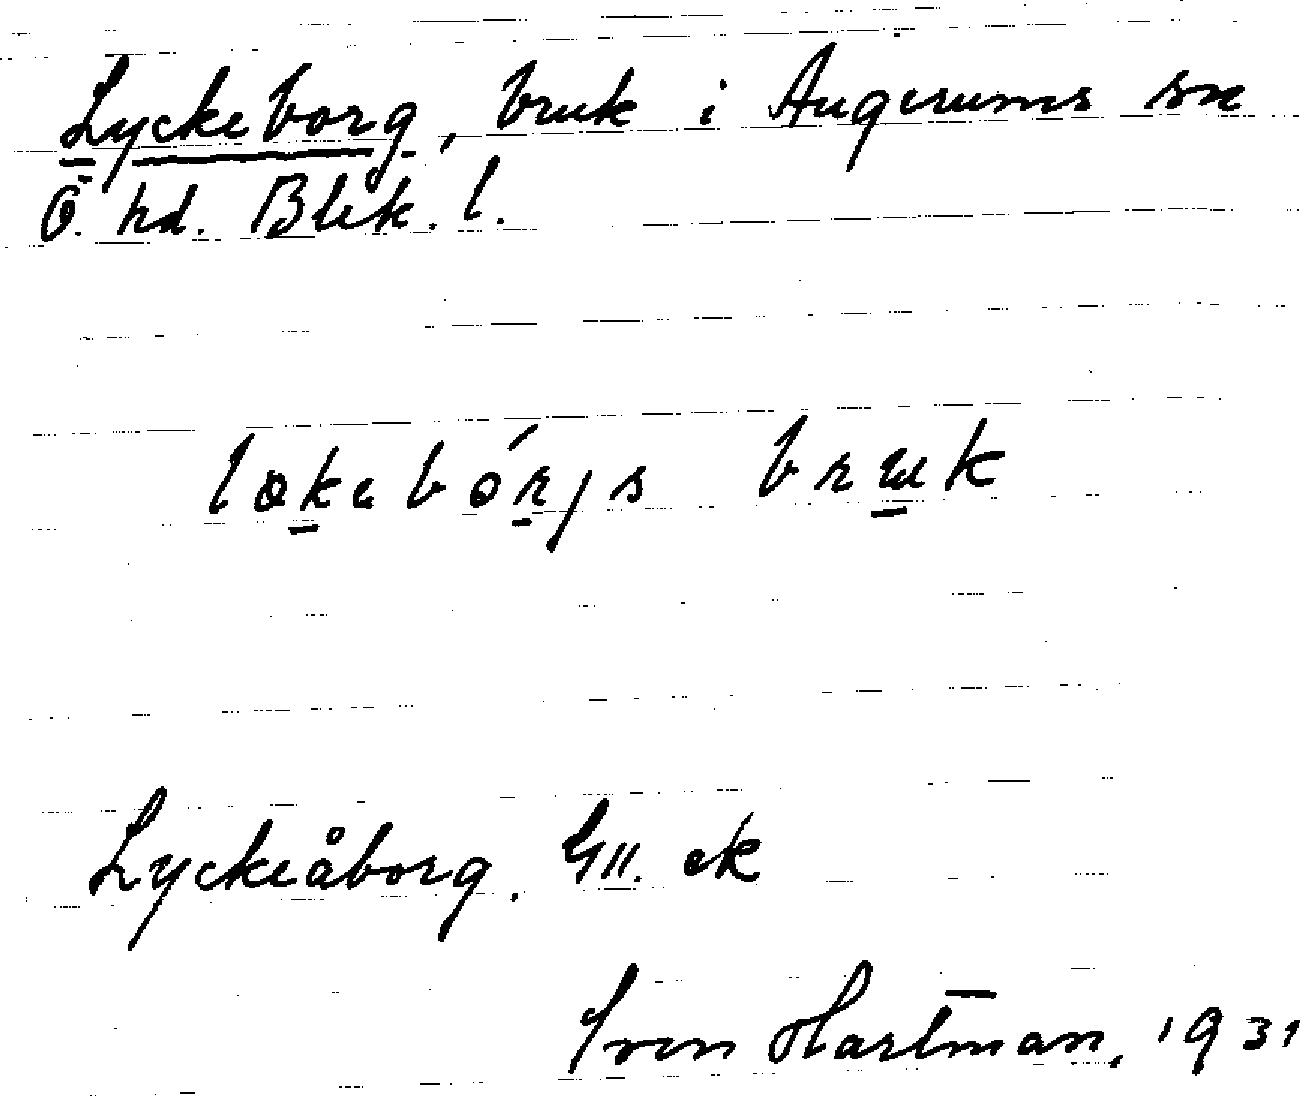 Lyckeborg, bruk i Augerums sn
Ö. hd. Blek. l.
bruk
Lyckeåborg. GII. ek
Sven Hartman, 1931